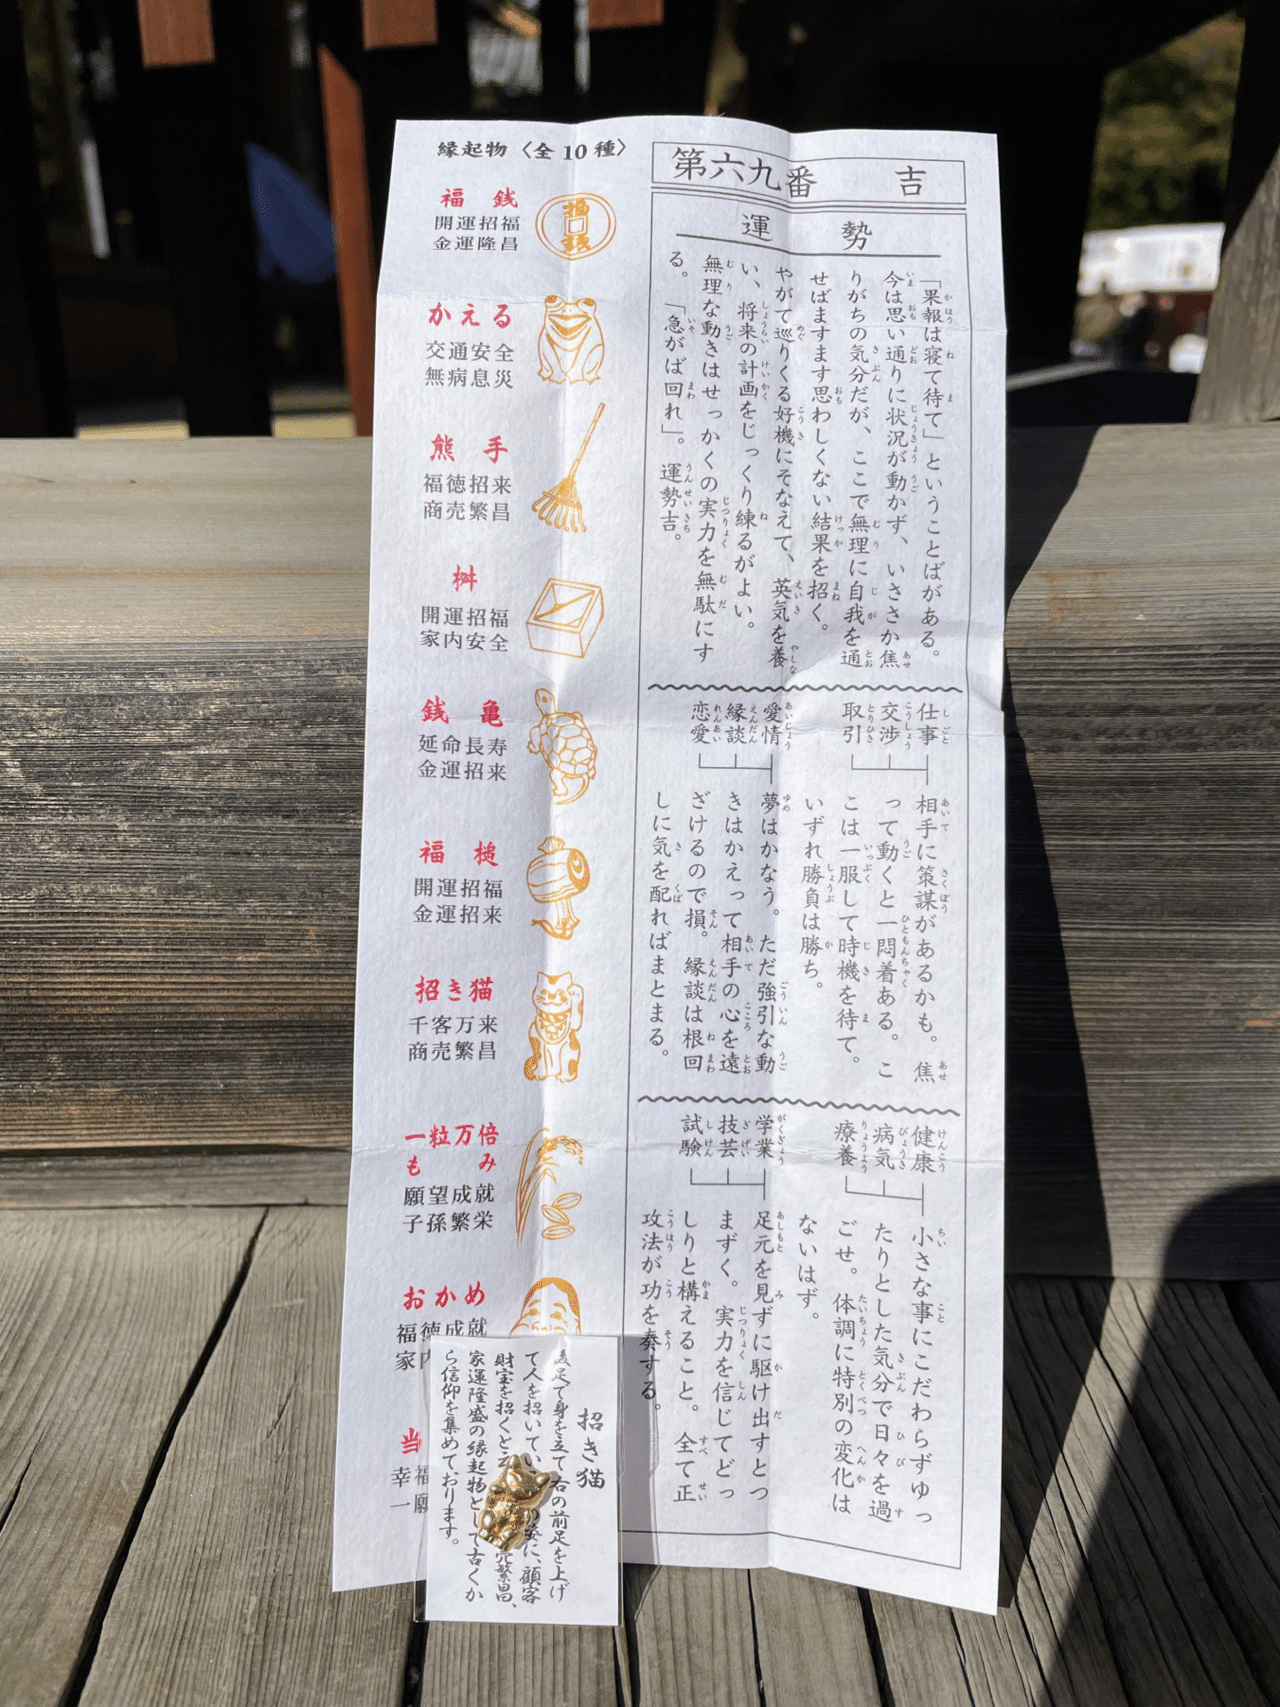 第六九番　吉
運勢
「果報は寝て待て」ということばがある。
今は思い通りに状況が動かず、いささか焦
りがちの気分だが、ここで無理に自我を通
せばますます思わしくない結果を招く。
やがて巡りくる好機にそなえて、英気を養
い、将来の計画をじっくり練るがよい。
無理な動きはせっかくの実力を無駄にす
る。「急がば回れ」。運勢吉。
仕事
交渉
取引
相手に策謀があるかも。焦
って動くと一悶着ある。こ
こは一服して時機を待て。
いずれ勝負は勝ち。
愛情
縁談
恋愛
夢はかなう。ただ強引な動
きはかえって相手の心を遠
ざけるので損。縁談は根回
しに気を配ればまとまる。
健康
病気
療養
小さな事にこだわらずゆっ
たりとした気分で日々を過
ごせ。体調に特別の変化は
ないはず。
学業
技芸
試験
足元を見ずに駆け出すとつ
まずく。実力を信じてどっ
しりと構えること。全て正
攻法が功を奏する。
縁起物〈全10種〉
福銭
開運招福
金運隆昌
福銭
かえる
交通安全
無病息災
熊手
福徳招来
商売繁昌
桝
開運招福
家内安全
銭亀
延命長寿
金運招来
福槌
開運招福
金運招来
招き猫
千客万来
商売繁昌
一粒万倍
もみ
願望成就
子孫繁栄
おかめ
福徳成就
家内
当
幸福
一願
招き猫
足で身を立て右の前足を上げ
て人を招いてい の姿に、顧客
財宝を招くと 売繁昌、
家運隆盛の縁起物として古くか
ら信仰を集めております。